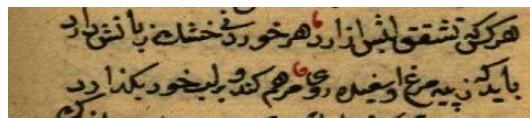 هر کس تشقق لبش ازارد هر خوردنی خشک زیانش دارد
باید که ز پیه مرغ و سفیده روی مرهم کند و بر لب خود بگذارد